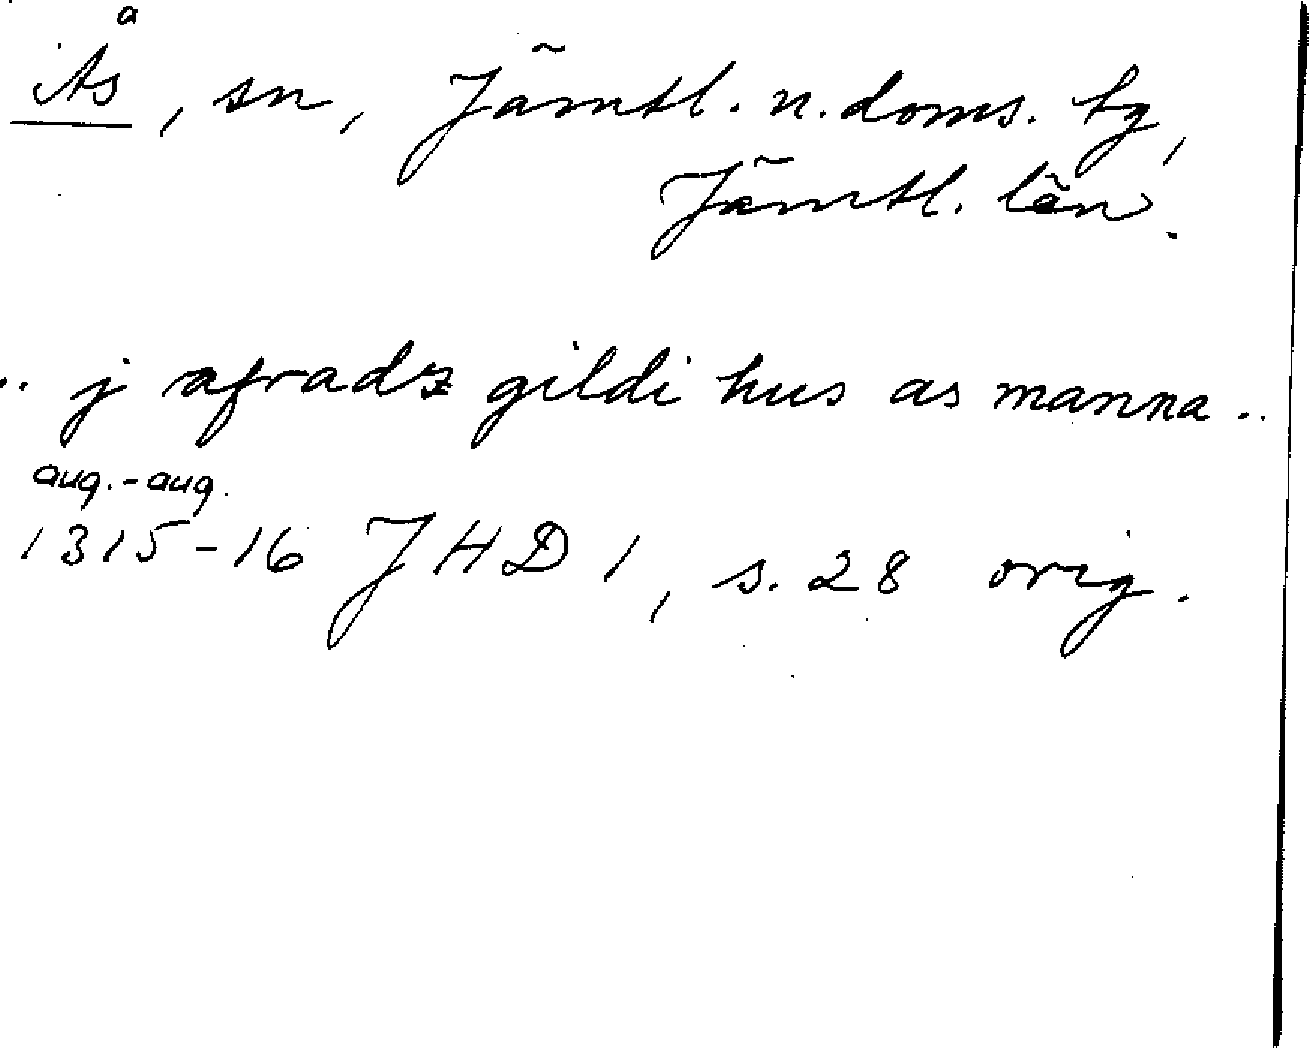 Ås, sn, Jämtl. n. doms. tg,
Jämtl. län.
.. j afradz gildi hus as manna ..
aug.-aug.
1315-16 JHD 1, s. 28 orig.